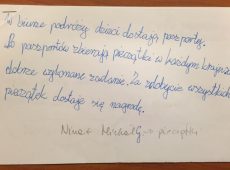 W biurze podróży dzieci dostają paszporty.
Do paszportów zbierają pieczątki w każdym kraju za
dobrze wykonane zadanie. Za zdobycie wszystkich
pieczątek dostaje się nagrodę.
Nina + Michał G → pieczątki